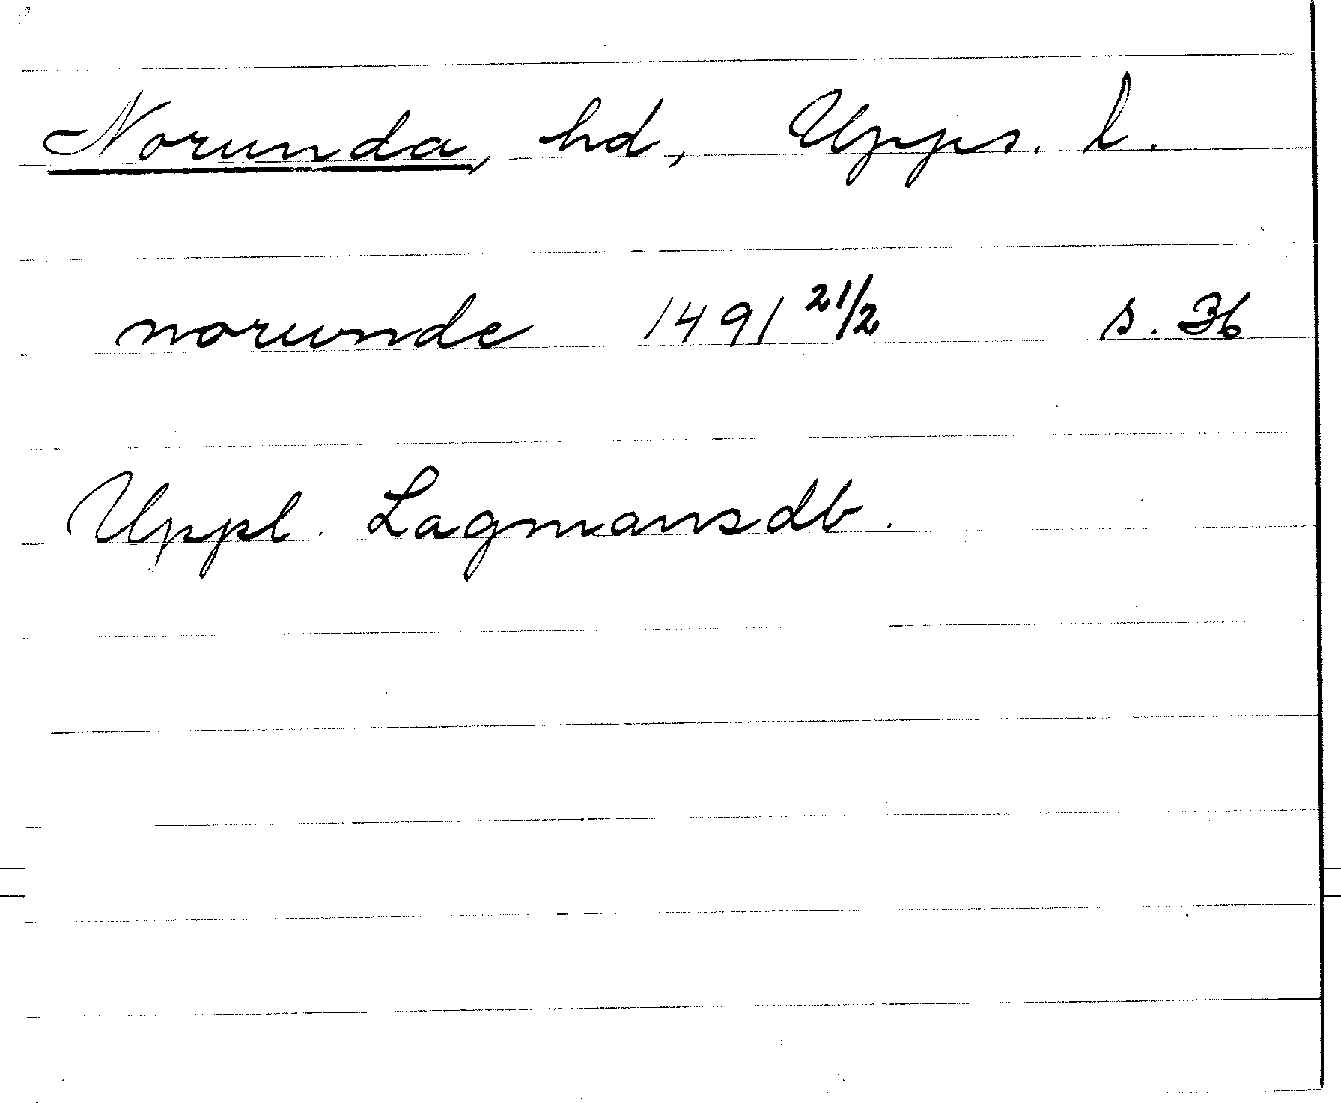 Norunda, hd, Upps. l.
norunde 1491 21/2 s. 36
Uppl. Lagmansdb.